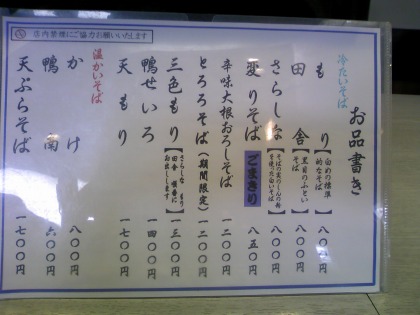 店内禁煙にご協力お願いいたします
お品書き
冷たいそば
もり【白めの標準的なそば】八〇〇円
田舎【黒目のふといそば】八〇〇円
さらしな【そばの実のしんの粉を使った白いそば】八〇〇円
変りそば ごまきり 八五〇円
辛味大根おろしそば 一二〇〇円
とろろそば（期間限定）一二〇〇円
三色もり【さらしな もり 田舎 順番にお出しします】一三〇〇円
鴨せいろ 一四〇〇円
天もり 一七〇〇円
温かいそば
かけ 八〇〇円
鴨南 一六〇〇円
天ぷらそば 一七〇〇円